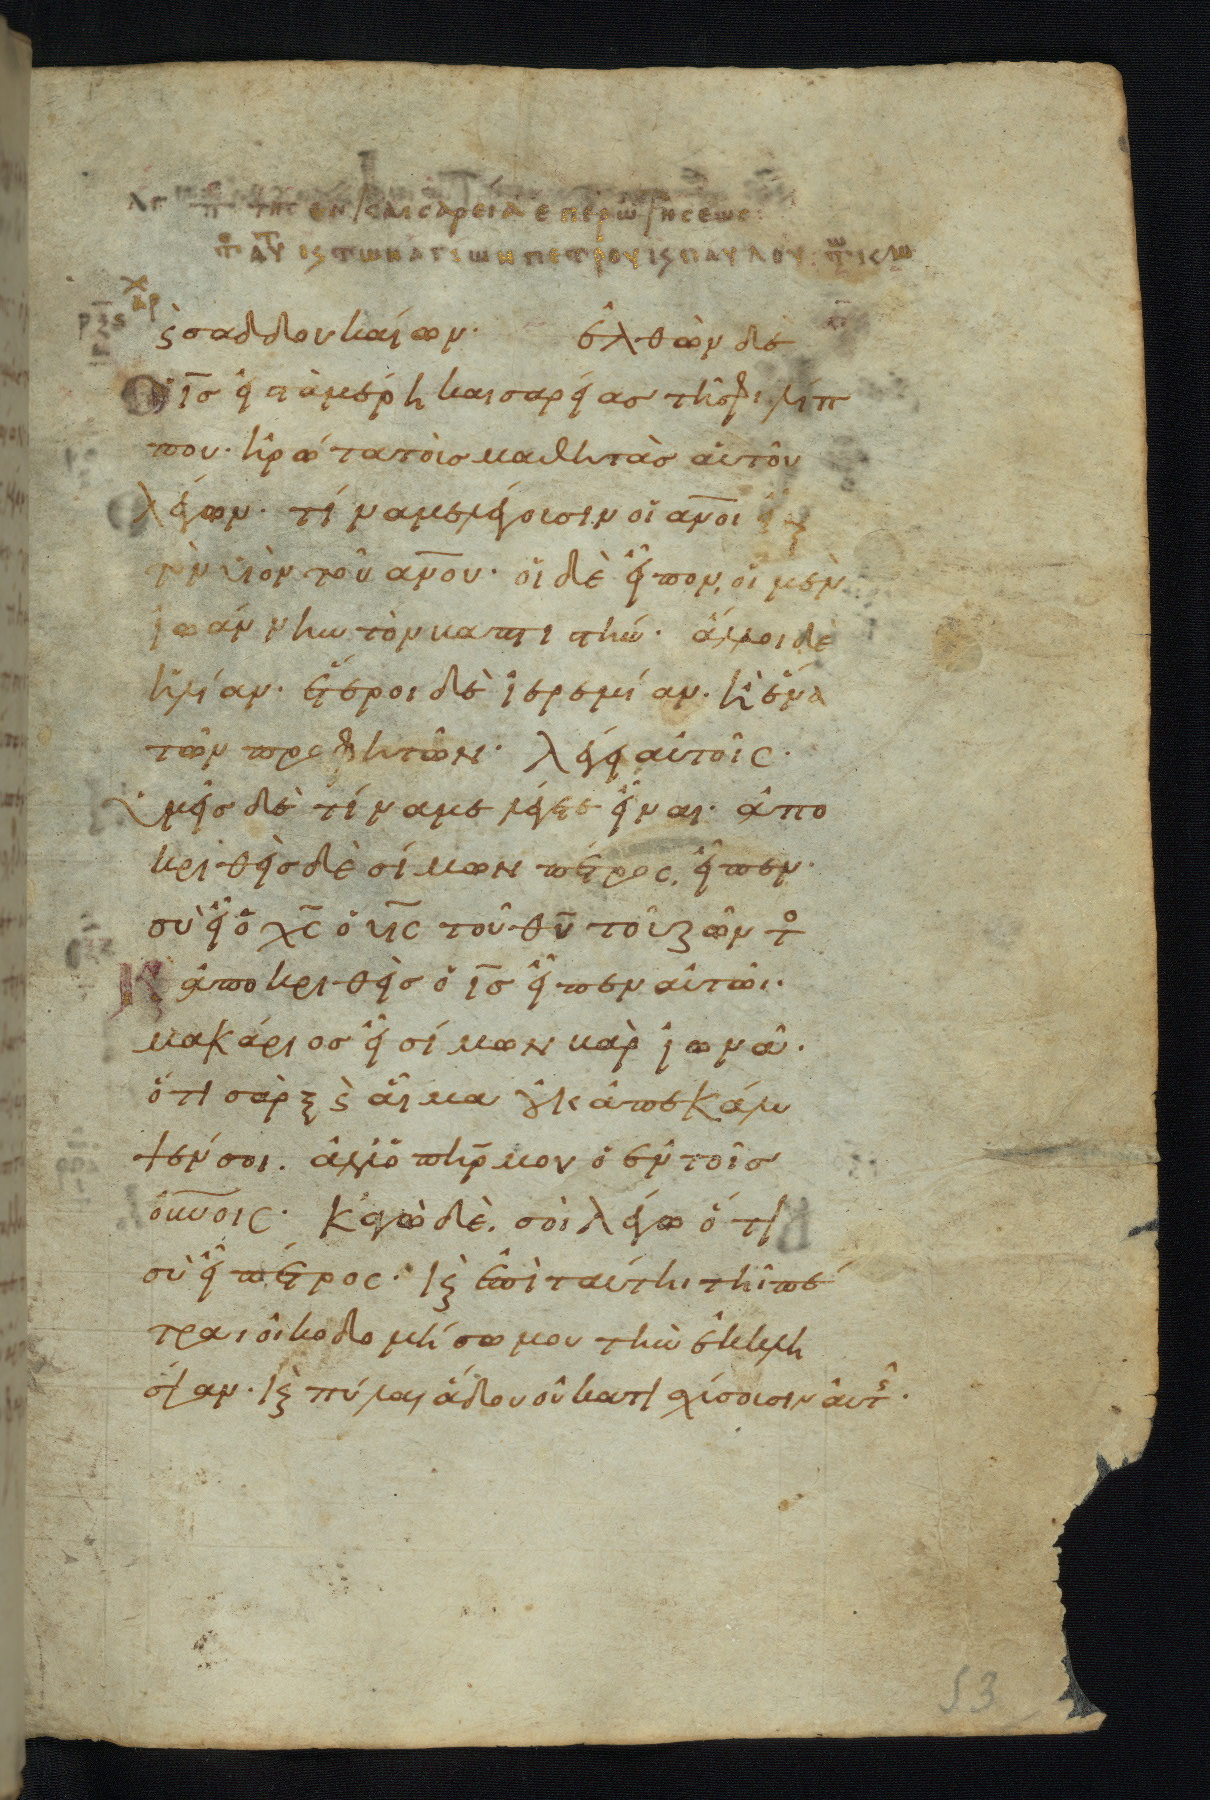 ΛΓ π̅ τῆς ἐν Καισαρεία ἐπερωτήσεως:
κ, τῶν ἁγίων Πέτρου κ, Παύλου:
ρξϛ
κ, σαδδουκαίων· ἐλθὼν δὲ
ὁ ι̅ς̅ εἰς τὰ μέρη καισαρείας τῆς φιλίπ
που· ἠρώτα τοὺς μαθητὰς αὐτοῦ
λέγων· τίνα με λέγουσιν οἱ α̅ν̅ο̅ι̅ εἶναι
τὸν υἱὸν τοῦ α̅ν̅ο̅υ̅· οἱ δὲ εἶπον, οἱ μὲν
ἰωάννην τὸν βαπτιστήν· ἄλλοι δὲ
ἠλίαν· ἕτεροι δὲ ἰερεμίαν· ἢ ἕνα
τῶν προφητῶν· λέγει αὐτοῖς·
ὑμεῖς δὲ τίνα με λέγετε εἶναι· ἀπο
κριθεὶς δὲ σίμων πέτρος, εἶπεν·
σὺ εἶ ὁ χ̅ς̅ ὁ υ̅ς̅ τοῦ θ̅υ̅ τοῦ ζῶντο
Κ ἀποκριθεὶς ὁ ι̅ς̅ εἶπεν αὐτῶι·
μακάριος εἶ σίμων βὰρ ἰωνᾶ·
ὅτι σὰρξ κ, αἷμα οὐκ ἀπεκάλυ
ψέν σοι. ἀλλ' ὁ π̅η̅ρ̅ μου ὁ ἐν τοῖς
ο̅υ̅ν̅ο̅ι̅ς̅· Κἀγὼ δὲ, σοὶ λέγω ὅτι
σὺ εἶ πέτρος· κ, ἐπὶ ταύτηι τῆι πέ
τραι οἰκοδομήσω μου τὴν ἐκκλη
σίαν· κ, πύλαι ἅδου οὐ κατισχύσουσιν αὐτῆς·
53